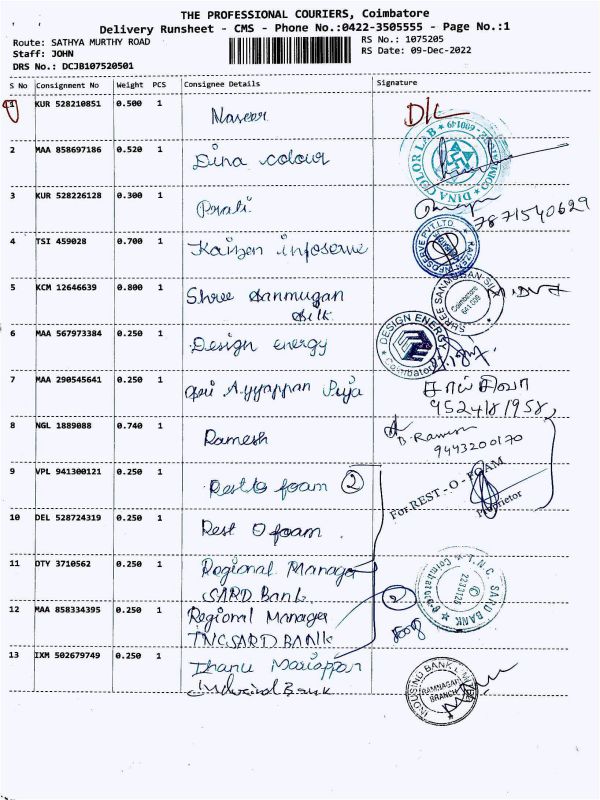 THE PROFESSIONAL COURIERS, Coimbatore
Delivery Runsheet - CMS - Phone No.:0422-3505555 - Page No.:1
Route: SATHYA MURTHY ROAD
RS No.: 1075205
Staff: JOHN
RS Date: 09-Dec-2022
DRS No.: DCJB107520501
S No Consignment No Weight PCS Consignee Details Signature
1 KUR 528210851 0.500 1 Naseer D/L
2 MAA 858697186 0.520 1 Dina colour
DINA COLOR LAB
3 KUR 528226128 0.300 1 7871540629
4 TSI 459028 0.700 1 Kaizen infoserve
KAIZEN INFOSERVE PVT LTD
5 KCM 12646639 0.800 1 Shree Sanmugan
Silk
SHREE SANMUGAN SILK Coimbatore
6 MAA 567973384 0.250 1 Design energy
DESIGN ENERGY Coimbatore
7 MAA 290545641 0.250 1 Sri Ayyappan Puja
8 NGL 1889088 0.740 1 Ramesh
9443200170
9 VPL 941300121 0.250 1 Rest O foam 2
For REST - O - FOAM
Proprietor
10 DEL 528724319 0.250 1 Rest O foam
11 OTY 3710562 0.250 1 Regional Manager
SARD Bank
T.N.C. SARD BANK
12 MAA 858334395 0.250 1 Regional Manager 2
TNCSARD BANK
13 IXM 502679749 0.250 1 Thanu Mariappan
Indusind Bank
INDUSIND BANK LIMITED
RAMNAGAR
BRANCH